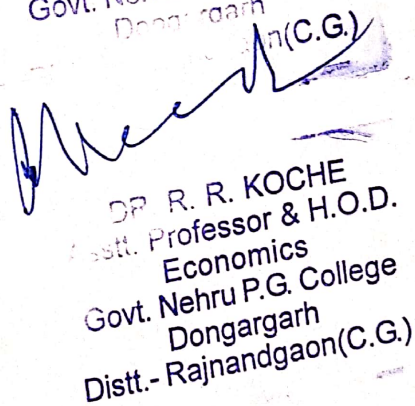 Govt.
Dongargarh
n(C.G.)
DR. R. R. KOCHE
Asstt. Professor & H.O.D.
Economics
Govt. Nehru P.G. College
Dongargarh
Distt.- Rajnandgaon(C.G.)